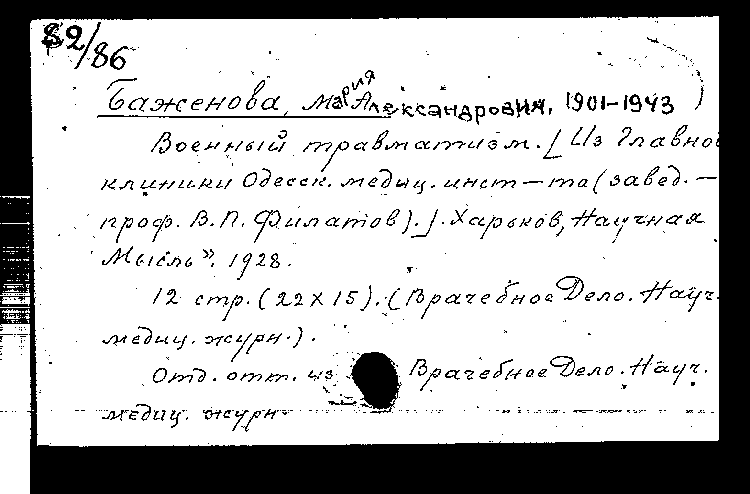 82/86
Баженова, Мария Александровия, 1901–1943
Военный травматизм. [Из Главной
клиники Одесск. медиц. инст–та (завед. –
проф. В.П. Филатов).]. Харьков, Научная
Мысль". 1928.
12 стр. (22X15). (Врачебное Дело. Науч.
медиц. журн.).
Отд. отт. из Врачебное Дело. Науч.
медиц. журн.